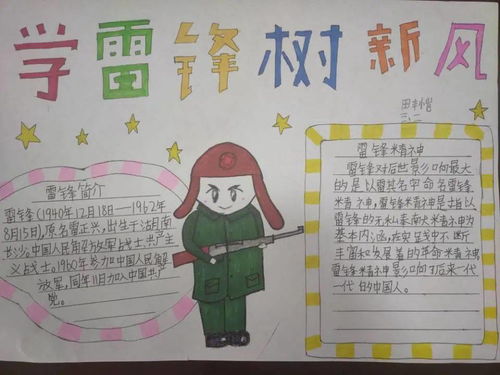 学雷锋树新风
田丰恺
三、二
雷锋简介
雷锋(1940年12月18日——1962年
8月15日),原名雷正兴,出生于湖南
长沙。中国人民解放军战士,共产主
义战士。1960年参加中国人民解
放军,同年11月加入中国共产
党。
雷锋精神
雷锋对后世影响最大
的是以雷其名字命名雷锋
精神,雷锋精神是指以
雷锋的无私奉献精神为
基本内涵,在实践中不断
丰富和发展着的革命精神,
雷锋精神影响了后来一代
一代的中国人。